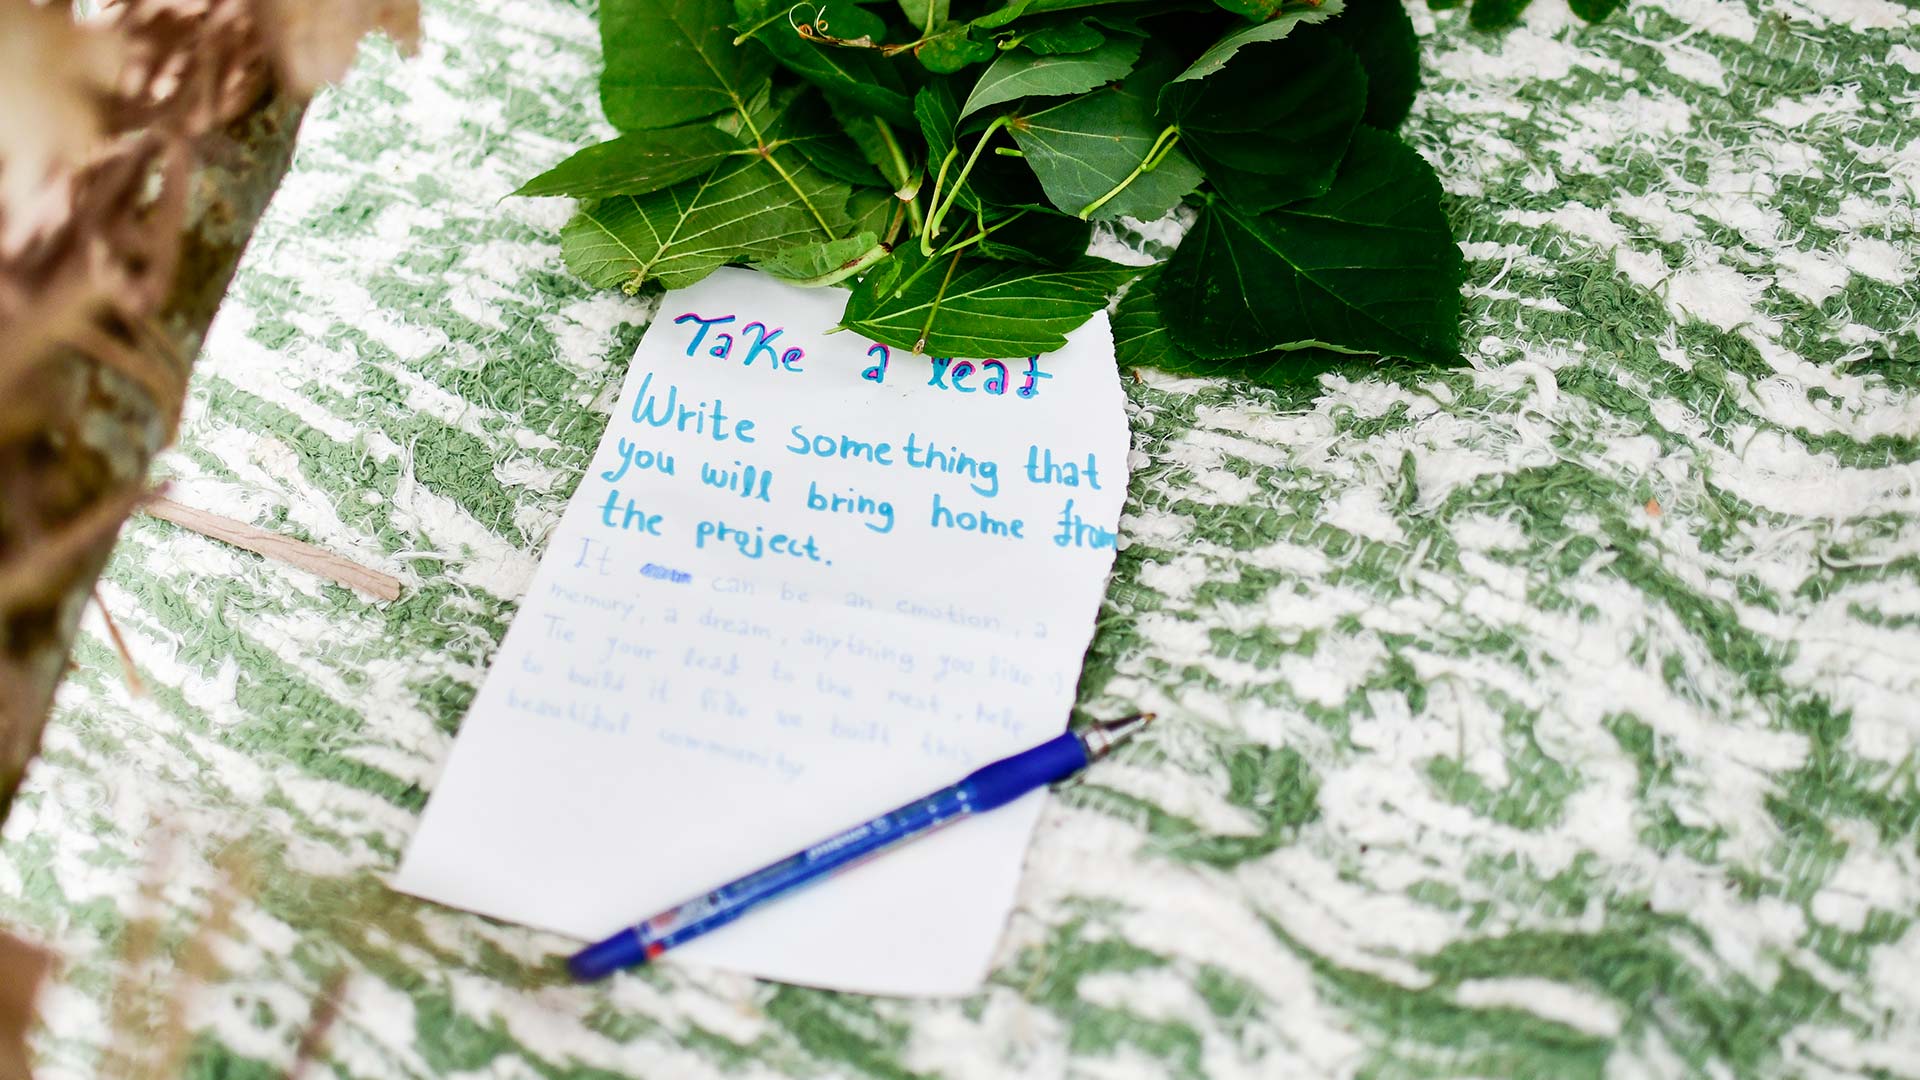 Take a leaf
Write something that
you will bring home from
the project.
It can be an emotion, a
memory, a dream, anything you like :)
Tie your leaf to the rest, help
to build it like we built this
beautiful community